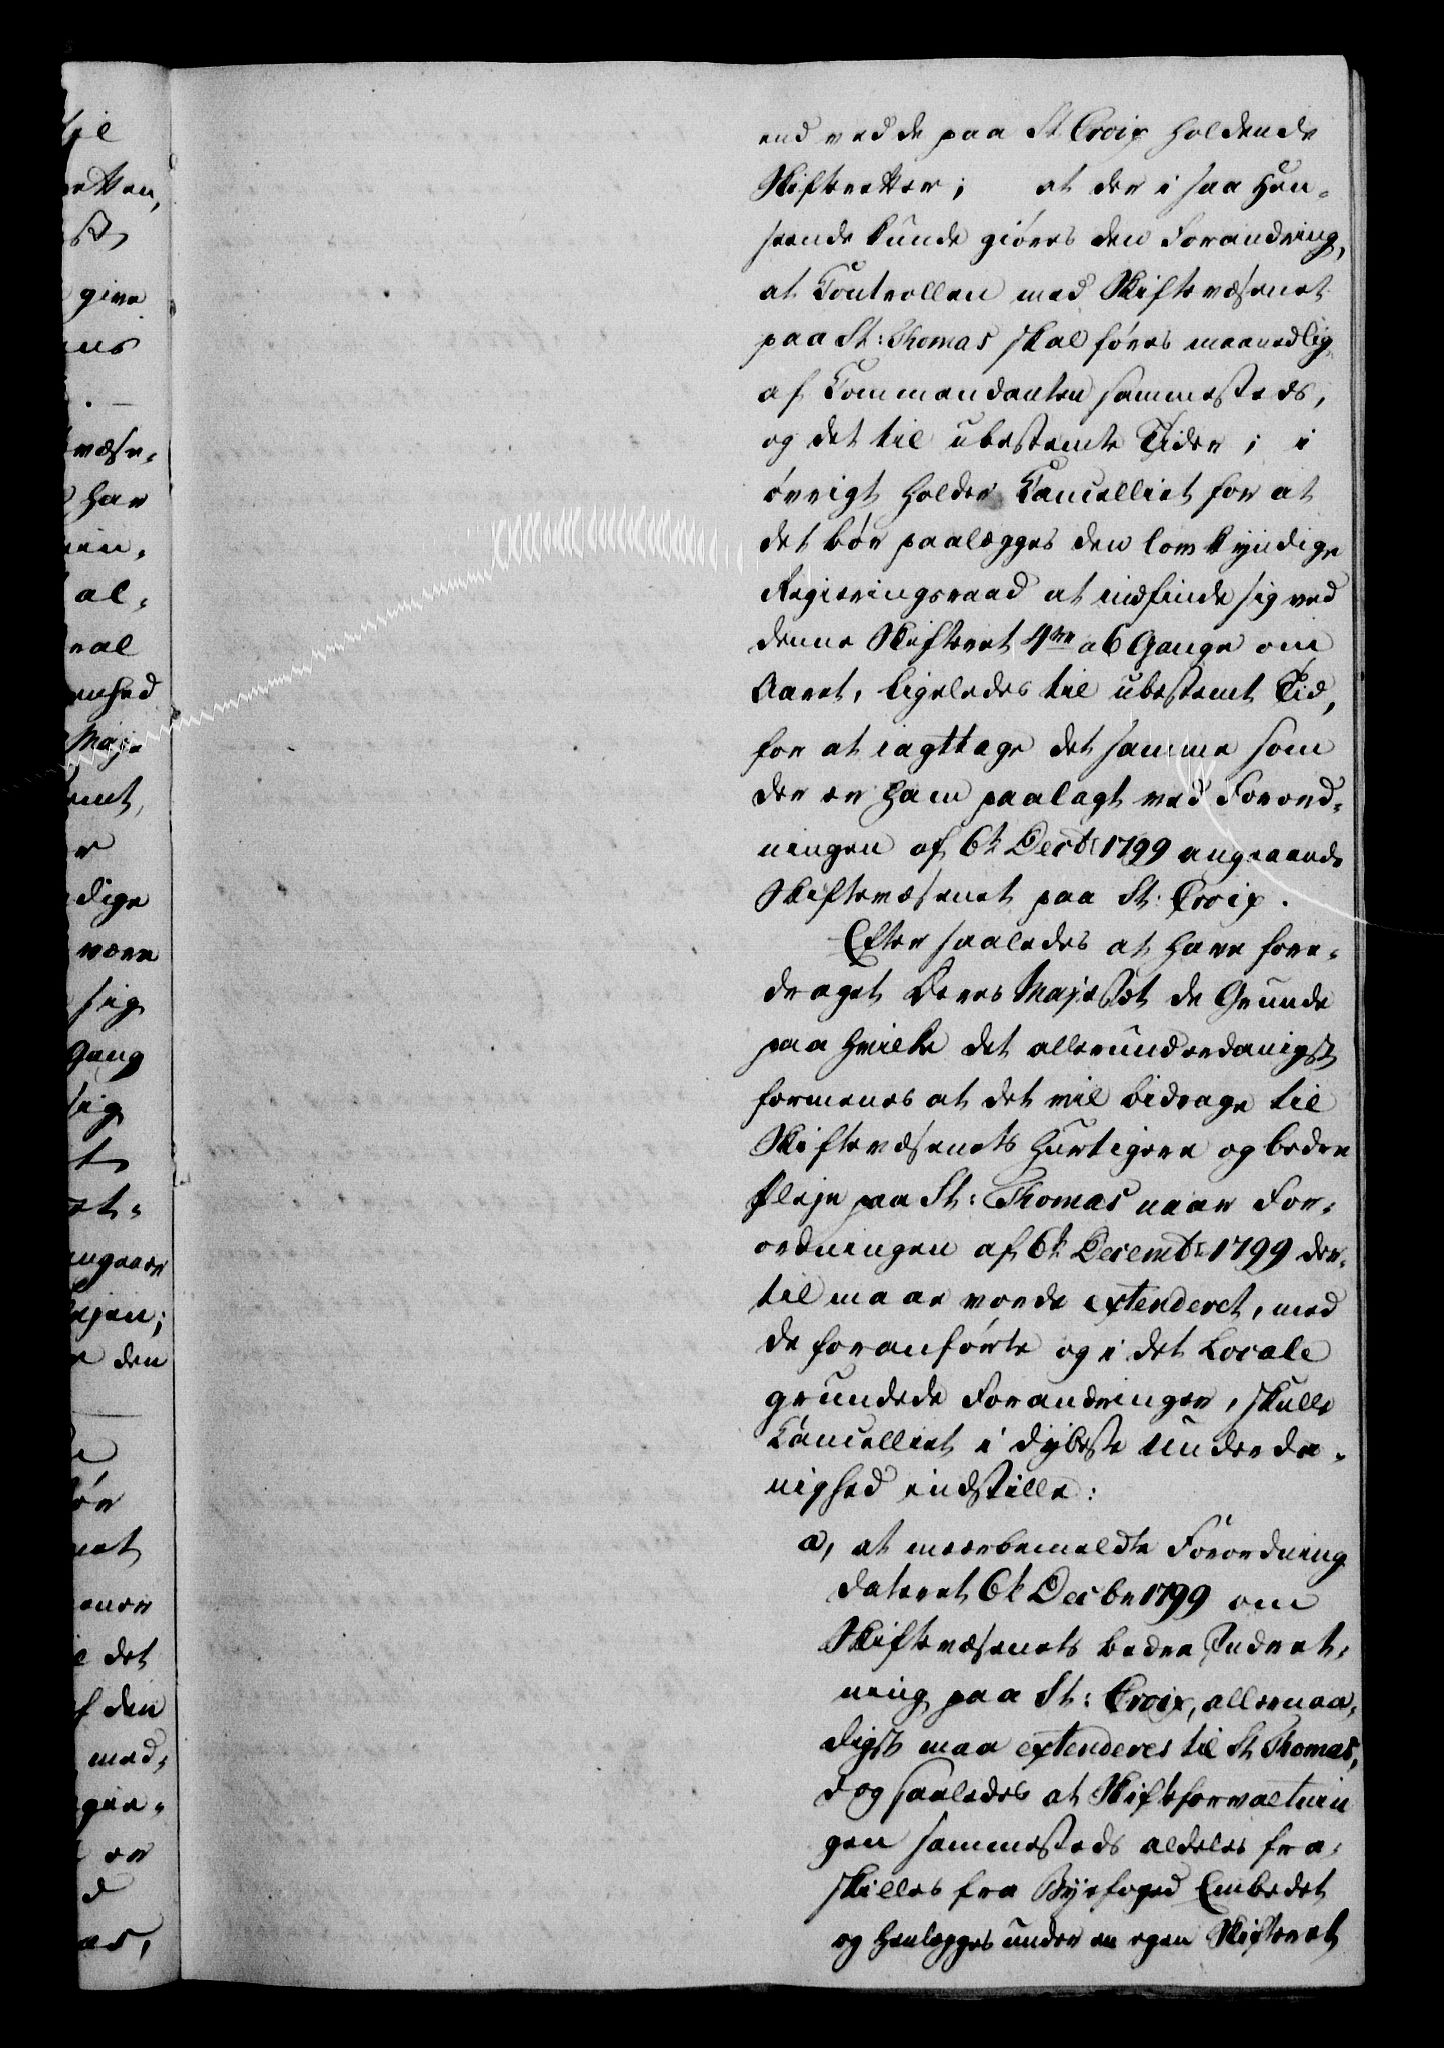 end ved de paa St Croix holdende
Skifteretter; at der i saa Hen-
seende kunde giøres den Forandring,
at Controllen med Skiftevæsenet
paa St: Thomas skal føres maanedlig
af Commendanten sammesteds,
og det til ubestemte Tider; i
øvrigt holder Cancelliet for at
det bør paalægges den lovkyndige
Regieringsraad at indfinde sig ved
denne Skifteret 4re a 6 Gange om
Aaret, ligeledes til ubestemt Tid,
for at iagttage det samme som
der er ham paalagt ved Forord-
ningen af 6te Decbr 1799 angaaende
Skiftevæsenet paa St: Croix.
Efter saaledes at have fore-
draget Deres Majestæt de Grunde
paa hvilke det allerunderdanigst
formenes at det vil bidrage til
Skiftevæsenets hurtigere og bedre
Pleje paa St: Thomas naar For-
ordningen af 6te Decembr 1799 der-
til maae vorde extenderet, med
de foranførte og i det Locale
grundede Forandringer, skulle
Cancelliet i dybeste Underda-
nighed indstille:
a, at meerbemeldte Forordning
dateret 6te Decbr 1799 om
Skiftevæsenets bedre Indret-
ning paa St: Croix, allernaa-
digst maa extenderes til St Thomas,
dog saaledes at Skifteforvaltnin
gen sammesteds aldeles fra-
skilles fra Byefoged Embedet
og henlægges under en egen Skifteret